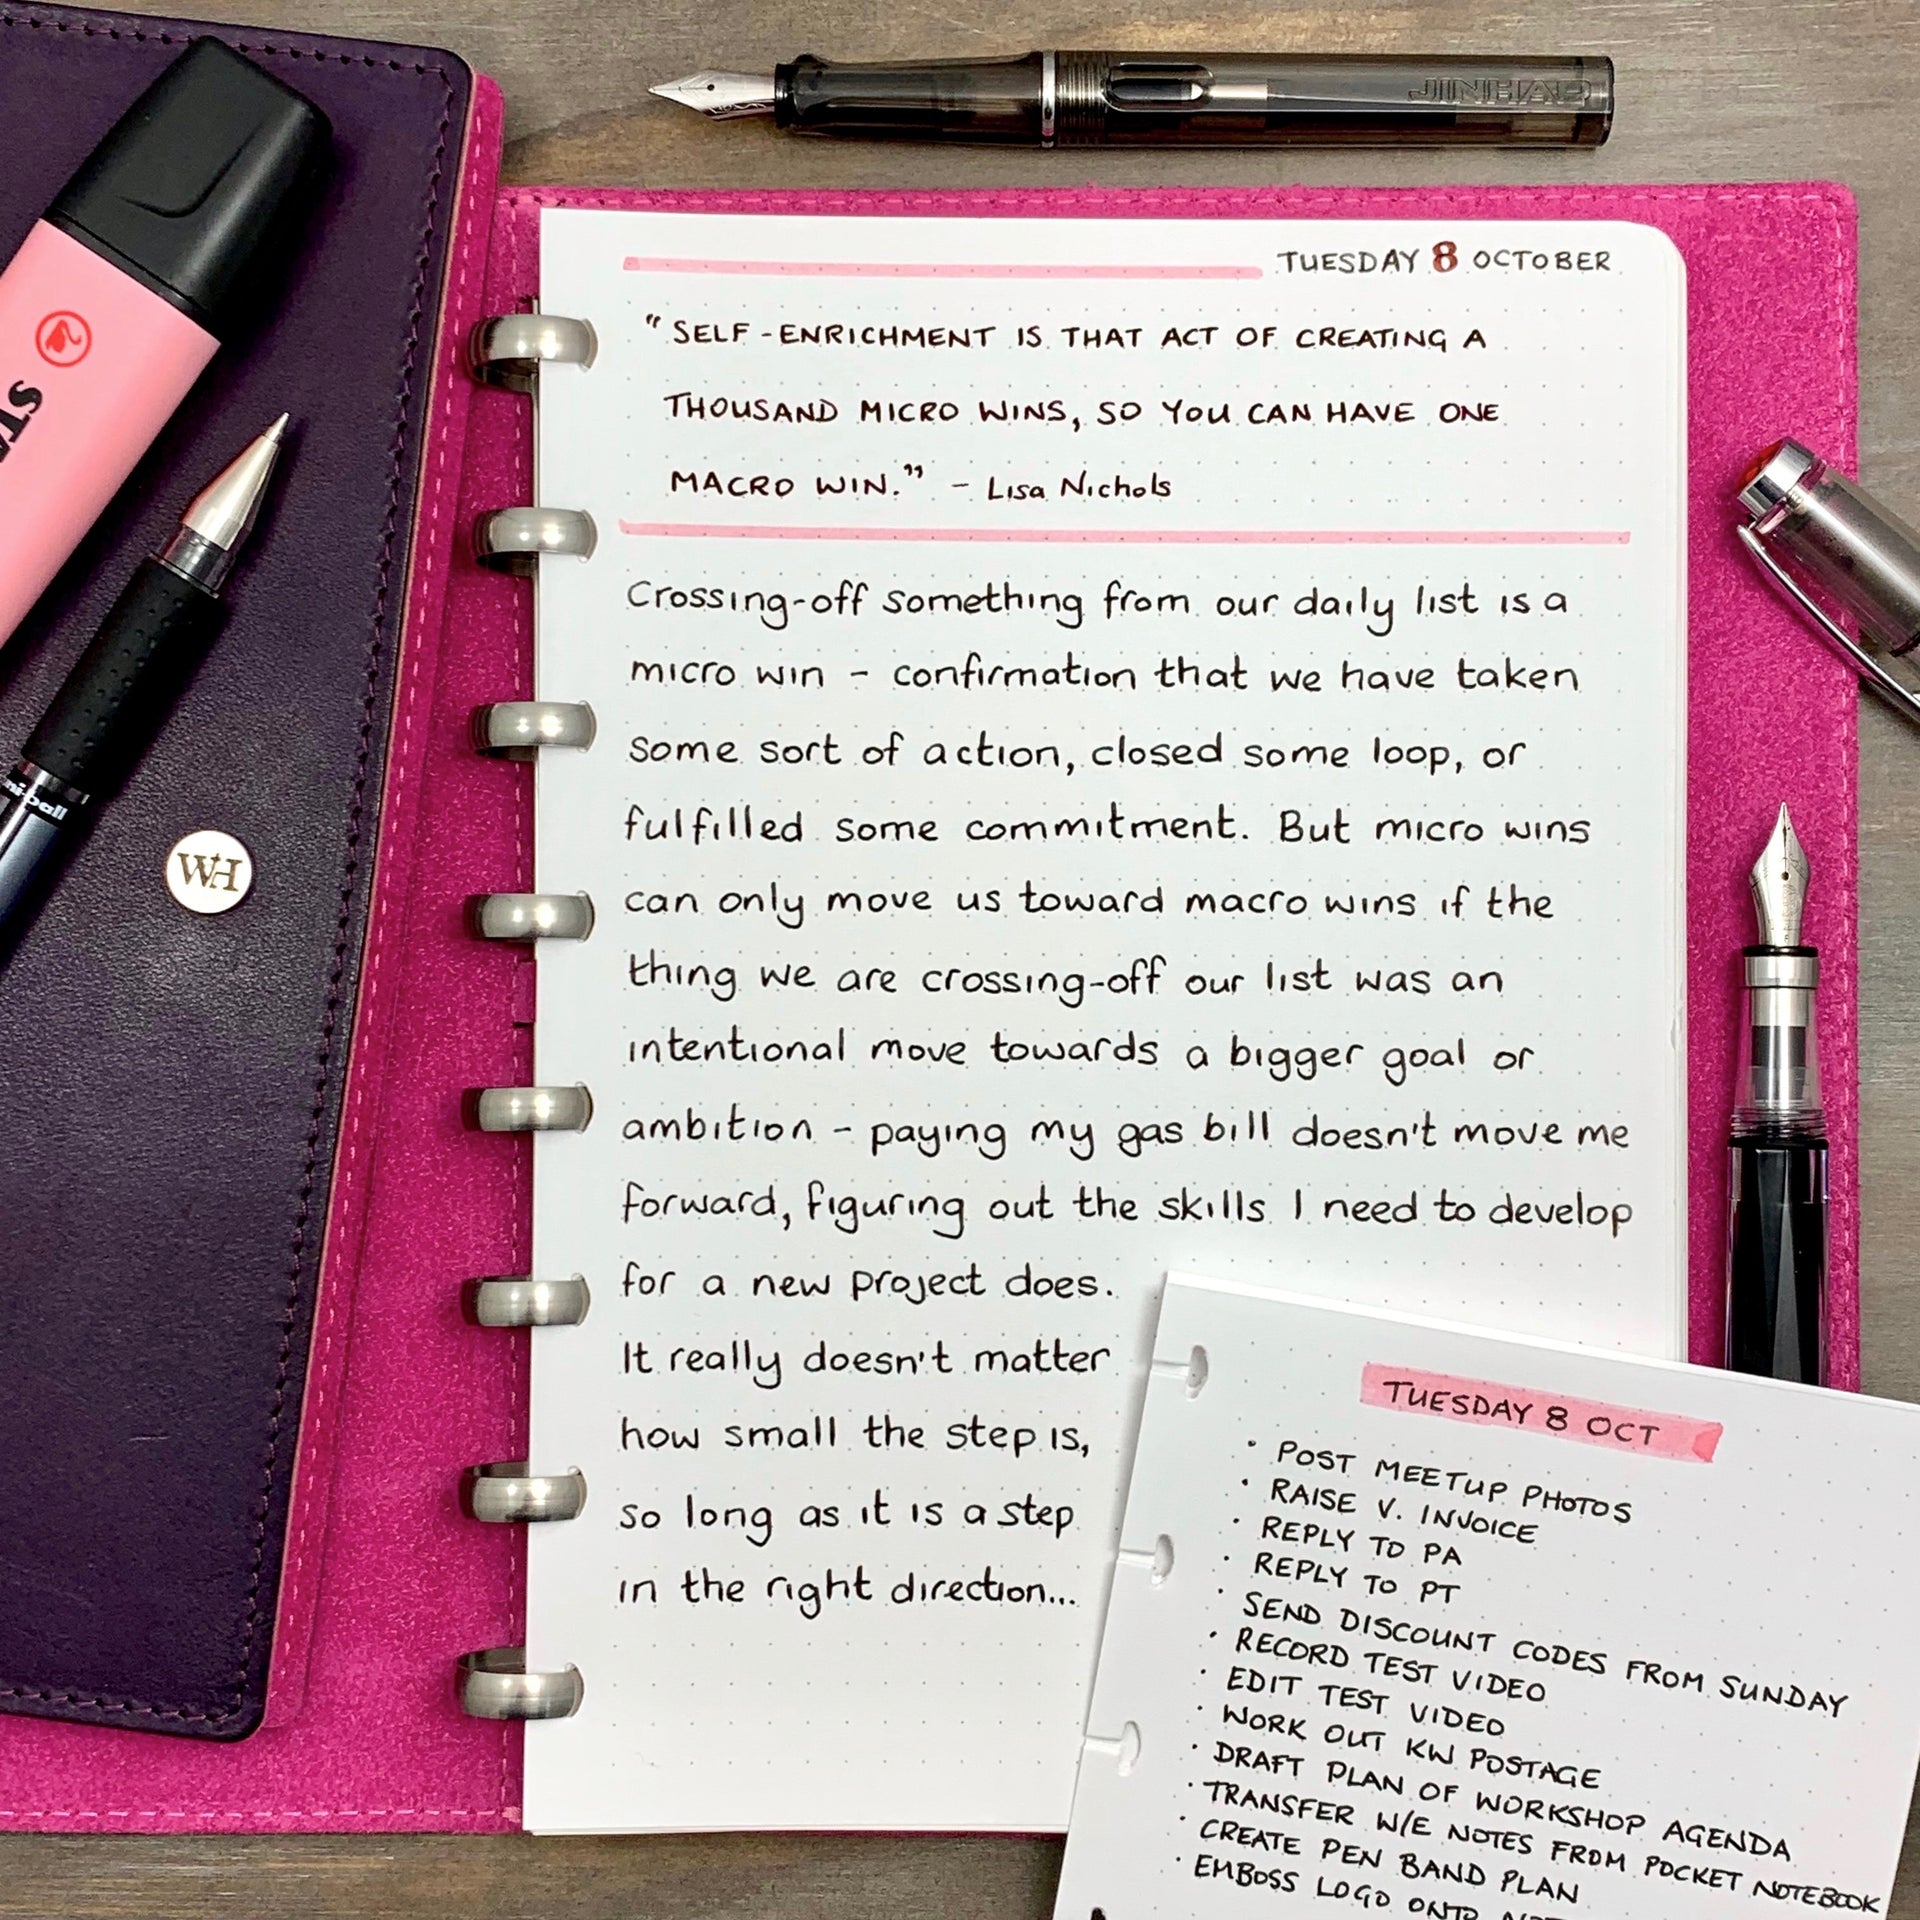 JINHAO
TUESDAY 8 OCTOBER
"SELF-ENRICHMENT IS THAT ACT OF CREATING A
THOUSAND MICRO WINS, SO YOU CAN HAVE ONE
MACRO WIN." - Lisa Nichols
Crossing-off something from our daily list is a
micro win - confirmation that we have taken
some sort of action, closed some loop, or
fulfilled some commitment. But micro wins
can only move us toward macro wins if the
thing we are crossing-off our list was an
intentional move towards a bigger goal or
ambition - paying my gas bill doesn't move me
forward, figuring out the skills I need to develop
for a new project does.
It really doesn't matter
how small the step is,
so long as it is a step
in the right direction...
TUESDAY 8 OCT
· POST MEETUP PHOTOS
· RAISE V. INVOICE
· REPLY TO PA
· REPLY TO PT
· SEND DISCOUNT CODES FROM SUNDAY
· RECORD TEST VIDEO
· EDIT TEST VIDEO
· WORK OUT KW POSTAGE
· DRAFT PLAN OF WORKSHOP AGENDA
· TRANSFER W/E NOTES FROM POCKET NOTEBOOK
· CREATE PEN BAND PLAN
· EMBOSS LOGO ONTO
WH
ni-ball